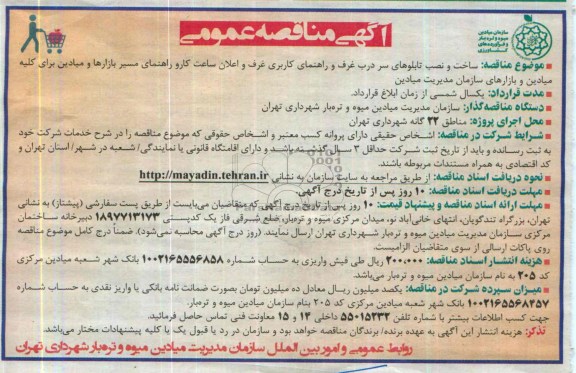 آگهی مناقصه عمومی
سازمان میادین
میوه و تره‌بار
و فرآورده‌های
کشاورزی
موضوع مناقصه: ساخت و نصب تابلوهای سر درب غرف و راهنمای کاربری غرف و اعلان ساعت کارو راهنمای مسیر بازارها و میادین برای کلیه
میادین و بازارهای سازمان مدیریت میادین
مدت قرارداد: یکسال شمسی از زمان ابلاغ قرارداد.
دستگاه مناقصه‌گذار: سازمان مدیریت میادین میوه و تره‌بار شهرداری تهران
محل اجرای پروژه: مناطق ۲۲ گانه شهرداری تهران
شرایط شرکت در مناقصه: اشخاص حقیقی دارای پروانه کسب معتبر و اشخاص حقوقی که موضوع مناقصه را در شرح خدمات شرکت خود
به ثبت رسانده و باید از تاریخ ثبت شرکت حداقل ۳ سال گذشته باشند و دارای اقامتگاه قانونی یا نمایندگی/ شعبه در شهر/ استان تهران و
کد اقتصادی به همراه مستندات مربوطه باشند.
نحوه دریافت اسناد مناقصه: از طریق مراجعه به سایت سازمان به نشانی http://mayadin.tehran.ir
مهلت دریافت اسناد مناقصه: ۱۰ روز پس از تاریخ درج آگهی.
مهلت ارائه اسناد مناقصه و پیشنهاد قیمت: ۱۰ روز پس از تاریخ درج آگهی که متقاضیان می‌بایست از طریق پست سفارشی (پیشتاز) به نشانی
تهران، بزرگراه تندگویان، انتهای خانی‌آباد نو، میدان مرکزی میوه و تره‌بار، ضلع شرقی فاز یک کدپستی ۱۸۹۷۷۱۳۱۷۳ دبیرخانه ساختمان
مرکزی سازمان مدیریت میادین میوه و تره‌بار شهرداری تهران ارسال نمایند. (روز درج آگهی محاسبه نمی‌شود). ضمناً درج کامل موضوع مناقصه
روی پاکات ارسالی از سوی متقاضیان الزامیست.
هزینه انتشار اسناد مناقصه: ۲۰۰.۰۰۰ ریال طی فیش واریزی به حساب شماره ۱۰۰۲۱۶۵۵۵۶۸۵۸ بانک شهر شعبه میادین مرکزی
کد ۲۰۵ به نام سازمان میادین میوه و تره‌بار می‌باشد.
میزان سپرده شرکت در مناقصه: یکصد میلیون ریال معادل ده میلیون تومان بصورت ضمانت نامه بانکی یا واریز نقدی به حساب شماره
۱۰۰۲۱۶۵۵۶۸۲۵۷ بانک شهر شعبه میادین مرکزی کد ۲۰۵ بنام سازمان میادین میوه و تره‌بار.
جهت کسب اطلاعات بیشتر با شماره تلفن ۵۵۰۱۵۲۳۲ داخلی ۱۴ و ۱۵ معاونت فنی تماس حاصل فرمائید.
تذکر: هزینه انتشار این آگهی به عهده برنده/ برندگان مناقصه خواهد بود و سازمان در رد یا قبول یک یا کلیه پیشنهادات مختار می‌باشد.
روابط عمومی و امور بین الملل سازمان مدیریت میادین میوه و تره‌بار شهرداری تهران